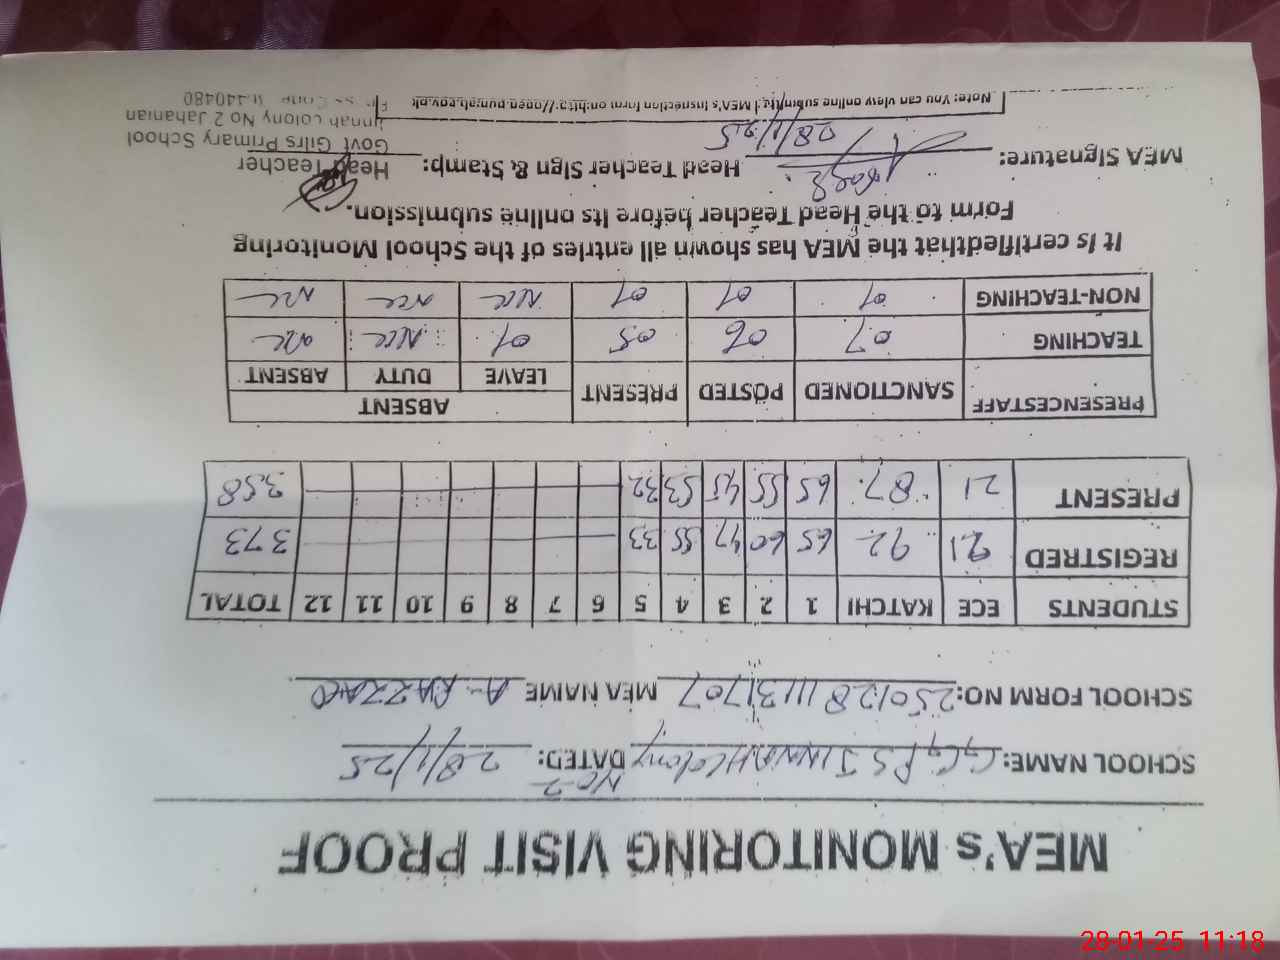 MEA's MONITORING VISIT PROOF
SCHOOL NAME: GGPS JINNAH Colony No-2 DATED: 28/1/25
SCHOOL FORM NO: 25012811131707 MEA NAME A. RAZZAQ
STUDENTS ECE KATCHI 1 2 3 4 5 6 7 8 9 10 11 12 TOTAL
REGISTRED 21 92 65 60 47 55 33 373
PRESENT 21 87 65 55 45 53 32 358
PRESENCESTAFF SANCTIONED POSTED PRESENT ABSENT
LEAVE DUTY ABSENT
TEACHING 07 06 05 01 NIL NIL
NON-TEACHING 01 01 01 NIL NIL NIL
It is certifiedthat the MEA has shown all entries of the School Monitoring
Form to the Head Teacher before its online submission.
MEA Signature: 28/1/25 Head Teacher Sign & Stamp:
Head Teacher
Govt Gilrs Primary School
Jinnah colony No 2 Jahanian
440480
Note: You can view online submitted MEA's Inspection form on:http://open.punjab.gov.pk
29-01-25 11:18